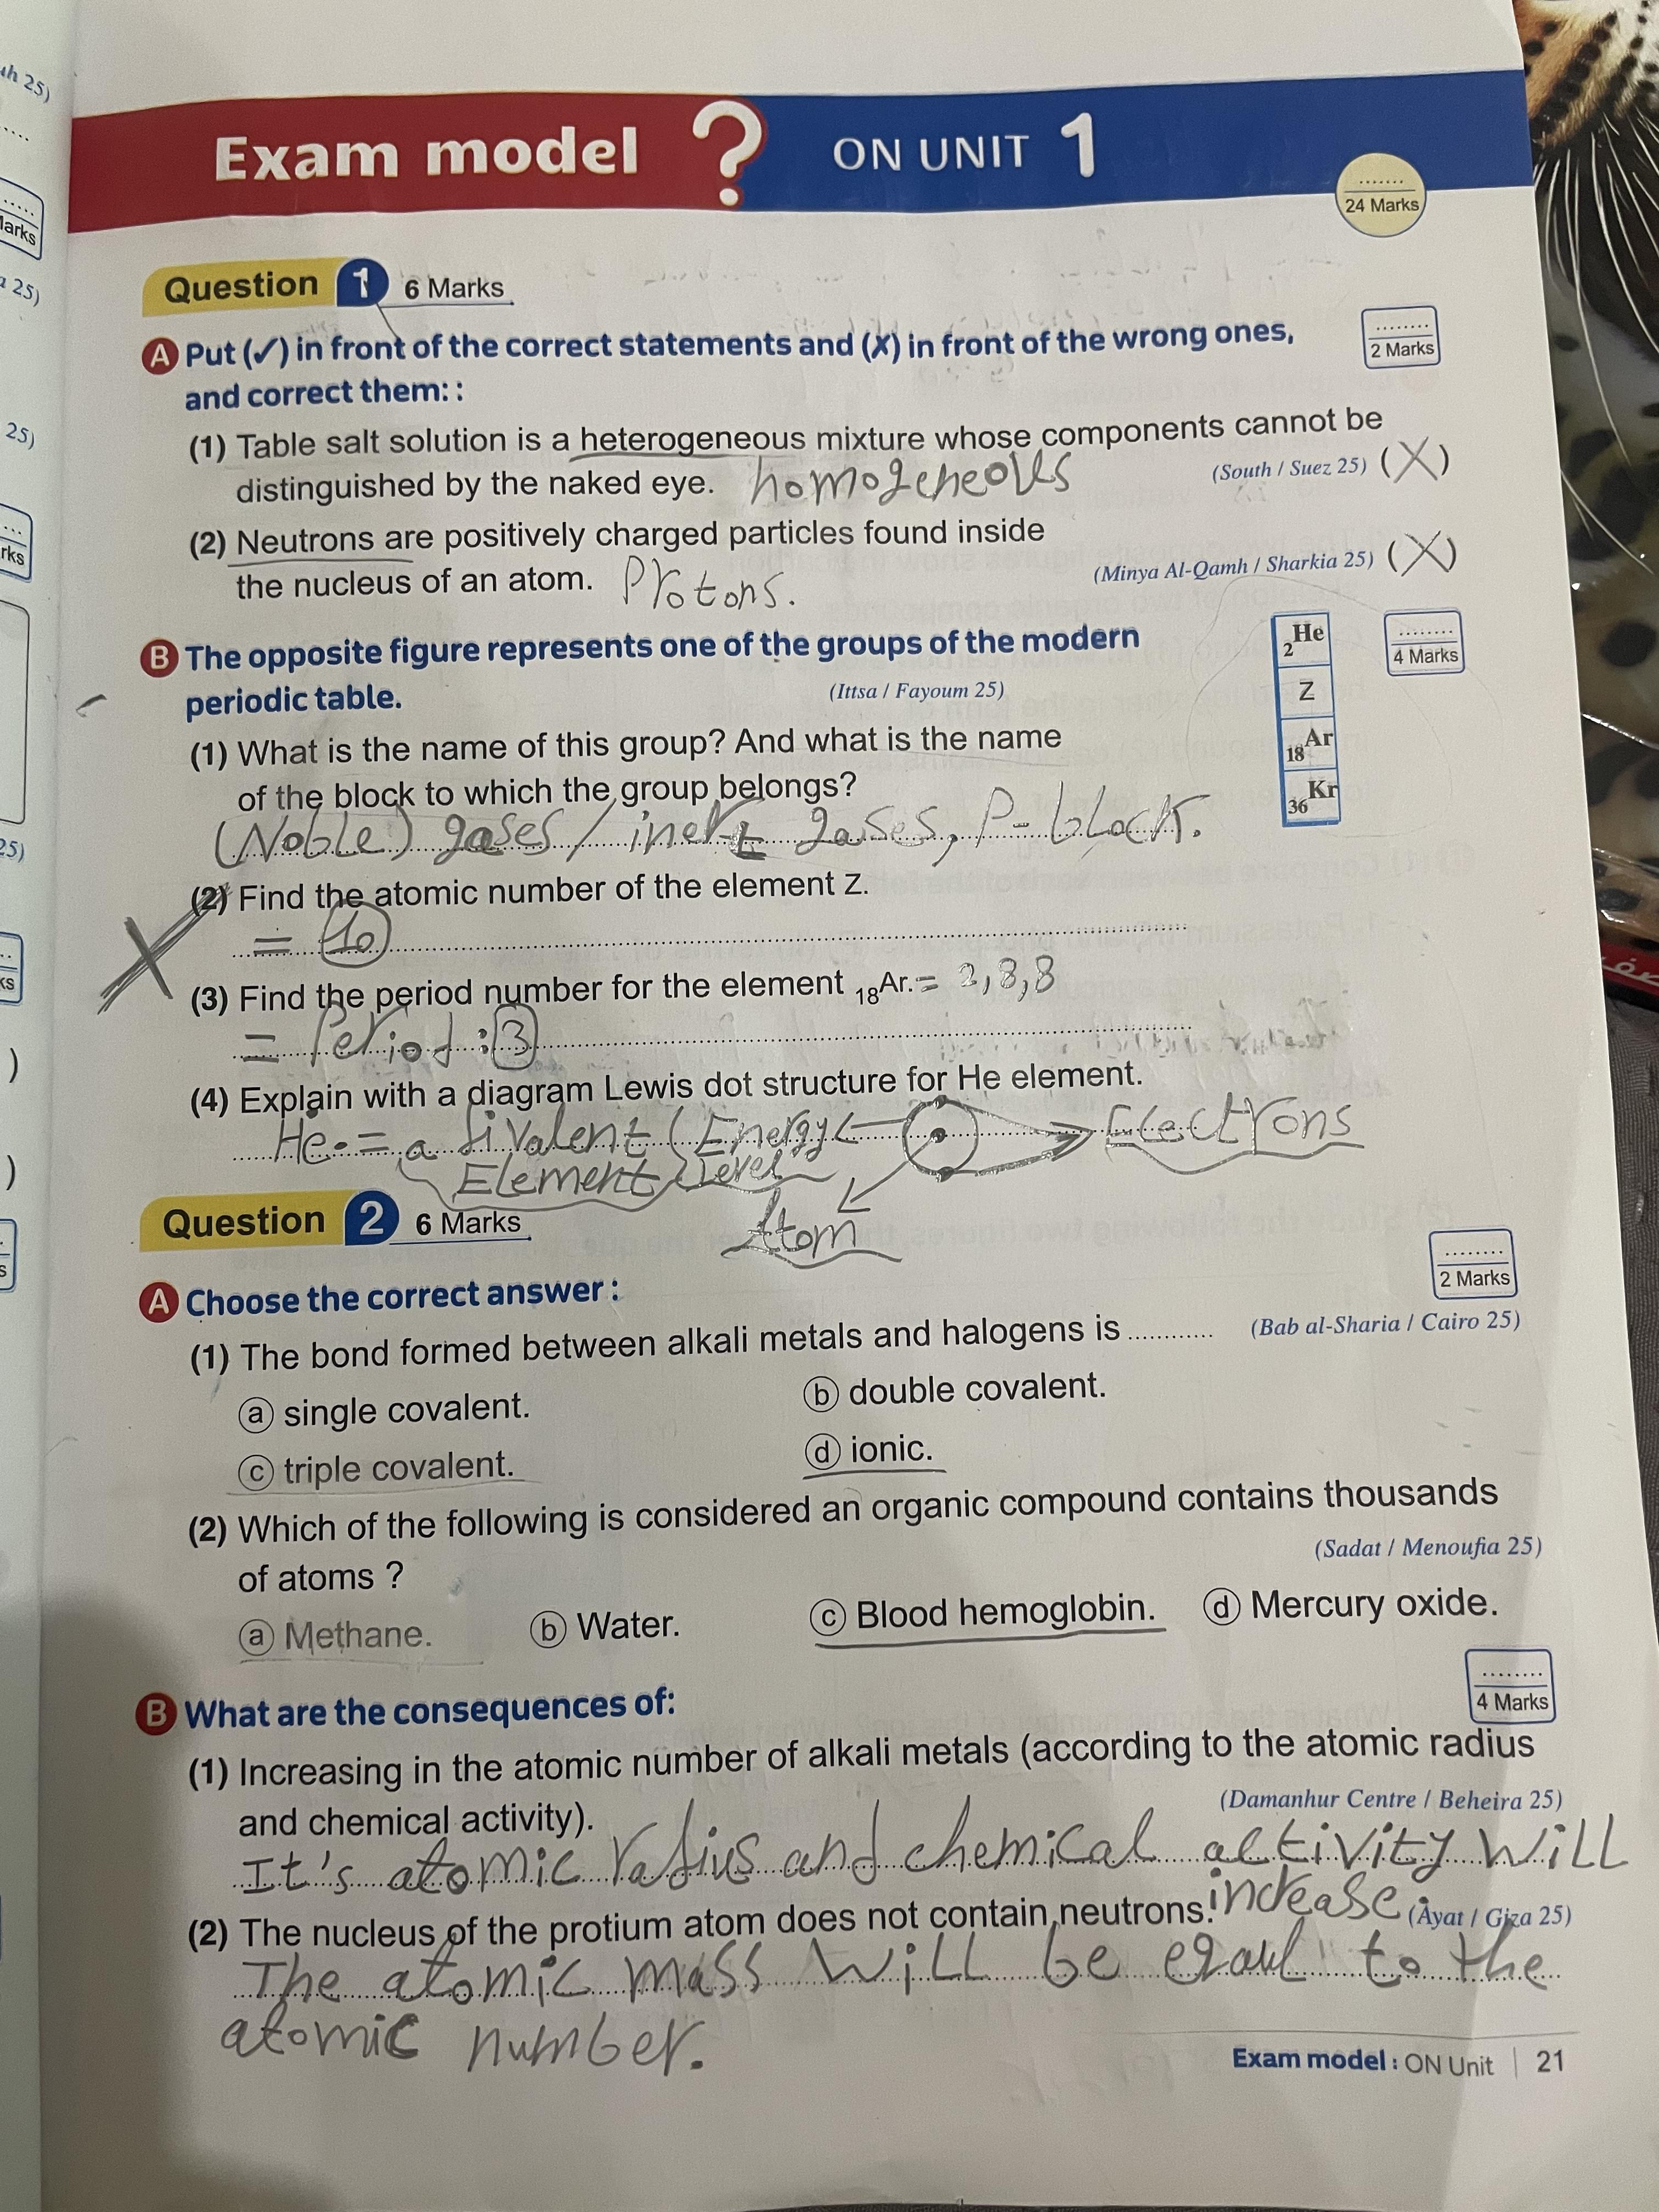 uh 25)
Exam model ? ON UNIT 1
24 Marks
Marks
Question 1 6 Marks
a 25)
A Put (✓) in front of the correct statements and (✗) in front of the wrong ones,
and correct them: :
2 Marks
25)
(1) Table salt solution is a heterogeneous mixture whose components cannot be
distinguished by the naked eye. homogeneous (South / Suez 25) (X)
rks
(2) Neutrons are positively charged particles found inside
the nucleus of an atom. Protons. (Minya Al-Qamh / Sharkia 25) (X)
B The opposite figure represents one of the groups of the modern
periodic table. (Ittsa / Fayoum 25)
2He
Z
18Ar
36Kr
4 Marks
(1) What is the name of this group? And what is the name
of the block to which the group belongs?
(Noble) gases / inert gases, P-block.
25)
(2) Find the atomic number of the element Z.
= 10
ks
(3) Find the period number for the element 18Ar. = 2,8,8
= Period : 3
(4) Explain with a diagram Lewis dot structure for He element.
He = a divalent Energy Electrons
Element Level
Atom
Question 2 6 Marks
s
A Choose the correct answer :
2 Marks
(1) The bond formed between alkali metals and halogens is ............ (Bab al-Sharia / Cairo 25)
a single covalent. b double covalent.
c triple covalent. d ionic.
(2) Which of the following is considered an organic compound contains thousands
of atoms ? (Sadat / Menoufia 25)
a Methane. b Water. c Blood hemoglobin. d Mercury oxide.
B What are the consequences of:
4 Marks
(1) Increasing in the atomic number of alkali metals (according to the atomic radius
and chemical activity). (Damanhur Centre / Beheira 25)
It's atomic radius and chemical activity will
increase
(2) The nucleus of the protium atom does not contain neutrons. (Ayat / Giza 25)
The atomic mass will be eqaul to the
atomic number.
Exam model : ON Unit | 21